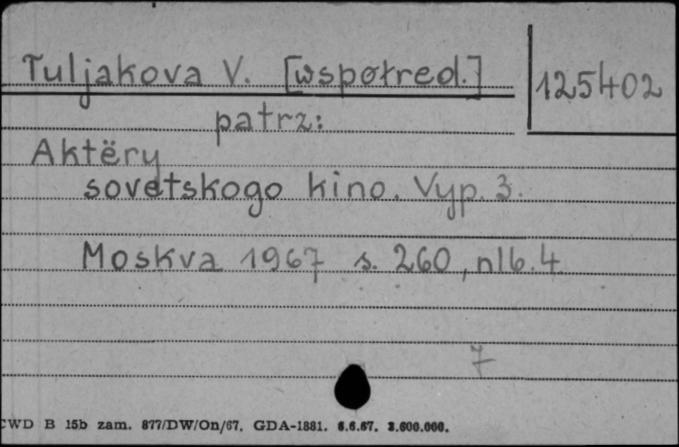 Tuljakova V. [współred.]
125402
patrz:
Aktëry
sovetskogo kino. Vyp. 3.
Moskva 1967 s. 260, nlb. 4
7
CWD B 15b zam. 877/DW/On/67. GDA-1881. 6.6.67. 3.600.000.